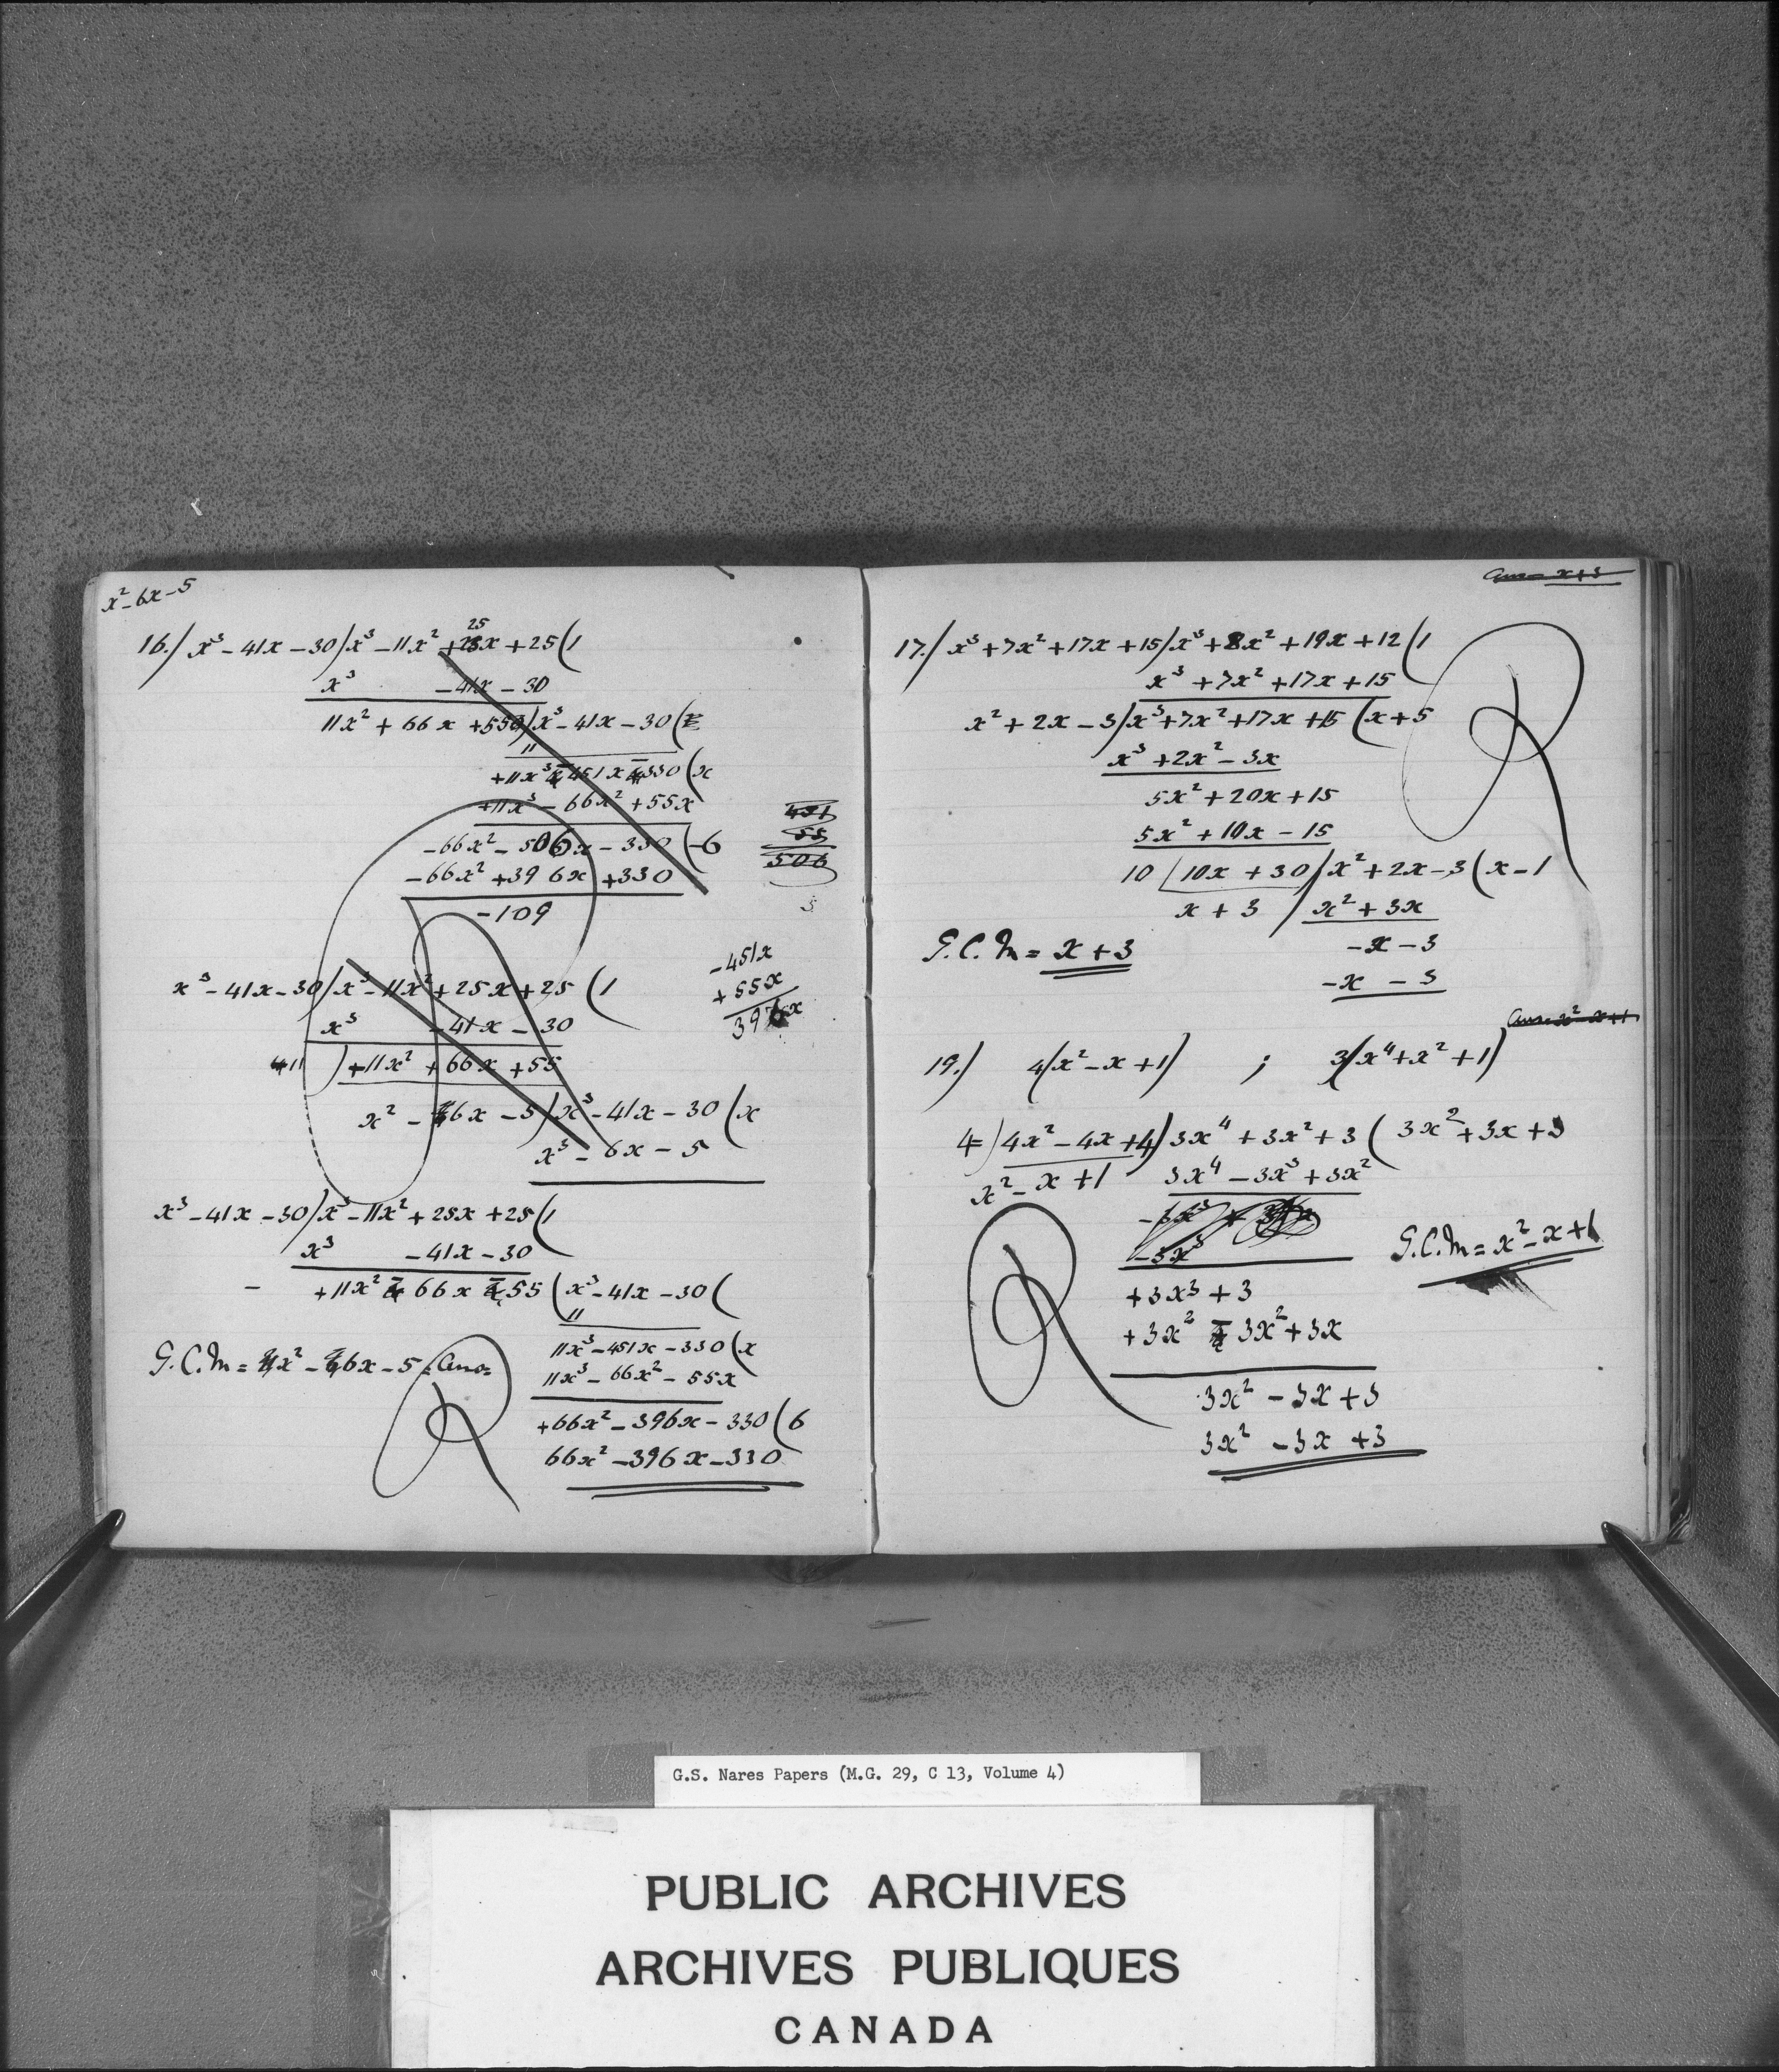 x² - 6x - 5
25
16.) x³ - 41x - 30) x³ - 11x² + 25x + 25 (1
x³ - 41x - 30
11x² + 66x + 550) x³ - 41x - 30 (
11
+11x³ - 451x - 330 (x
+11x³ - 66x² + 55x
-66x² - 506x - 330 (-6
-66x² + 396x + 330
-109
451
55
506
3
-451x
+55x
396x
x³ - 41x - 30) x³ - 11x² + 25x + 25 (1
x³ - 41x - 30
11) +11x² + 66x + 55
x² - 6x - 5) x³ - 41x - 30 (x
x³ - 6x - 5
x³ - 41x - 30) x³ - 11x² + 25x + 25 (1
x³ - 41x - 30
- +11x² - 66x - 55 (x³ - 41x - 30 (
11
11x³ - 451x - 330 (x
11x³ - 66x² - 55x
+66x² - 396x - 330 (6
66x² - 396x - 330
G.C.M = x² - 6x - 5 = Ans=
R
Ans= x+3
17.) x³ + 7x² + 17x + 15) x³ + 8x² + 19x + 12 (1
x³ + 7x² + 17x + 15
x² + 2x - 3) x³ + 7x² + 17x + 15 (x + 5
x³ + 2x² - 3x
5x² + 20x + 15
5x² + 10x - 15
10 | 10x + 30) x² + 2x - 3 (x - 1
x + 3 ) x² + 3x
G.C.M = x + 3
-x - 3
-x - 3
R
Ans= x² - x + 1
19.) 4(x² - x + 1) ; 3(x⁴ + x² + 1)
4=) 4x² - 4x + 4) 3x⁴ + 3x² + 3 ( 3x² + 3x + 3
x² - x + 1 3x⁴ - 3x³ + 3x²
-3x³
G.C.M = x² - x + 1
+3x³ + 3
+3x² - 3x² + 3x
3x² - 3x + 3
3x² - 3x + 3
R
G.S. Nares Papers (M.G. 29, C 13, Volume 4)
PUBLIC ARCHIVES
ARCHIVES PUBLIQUES
CANADA